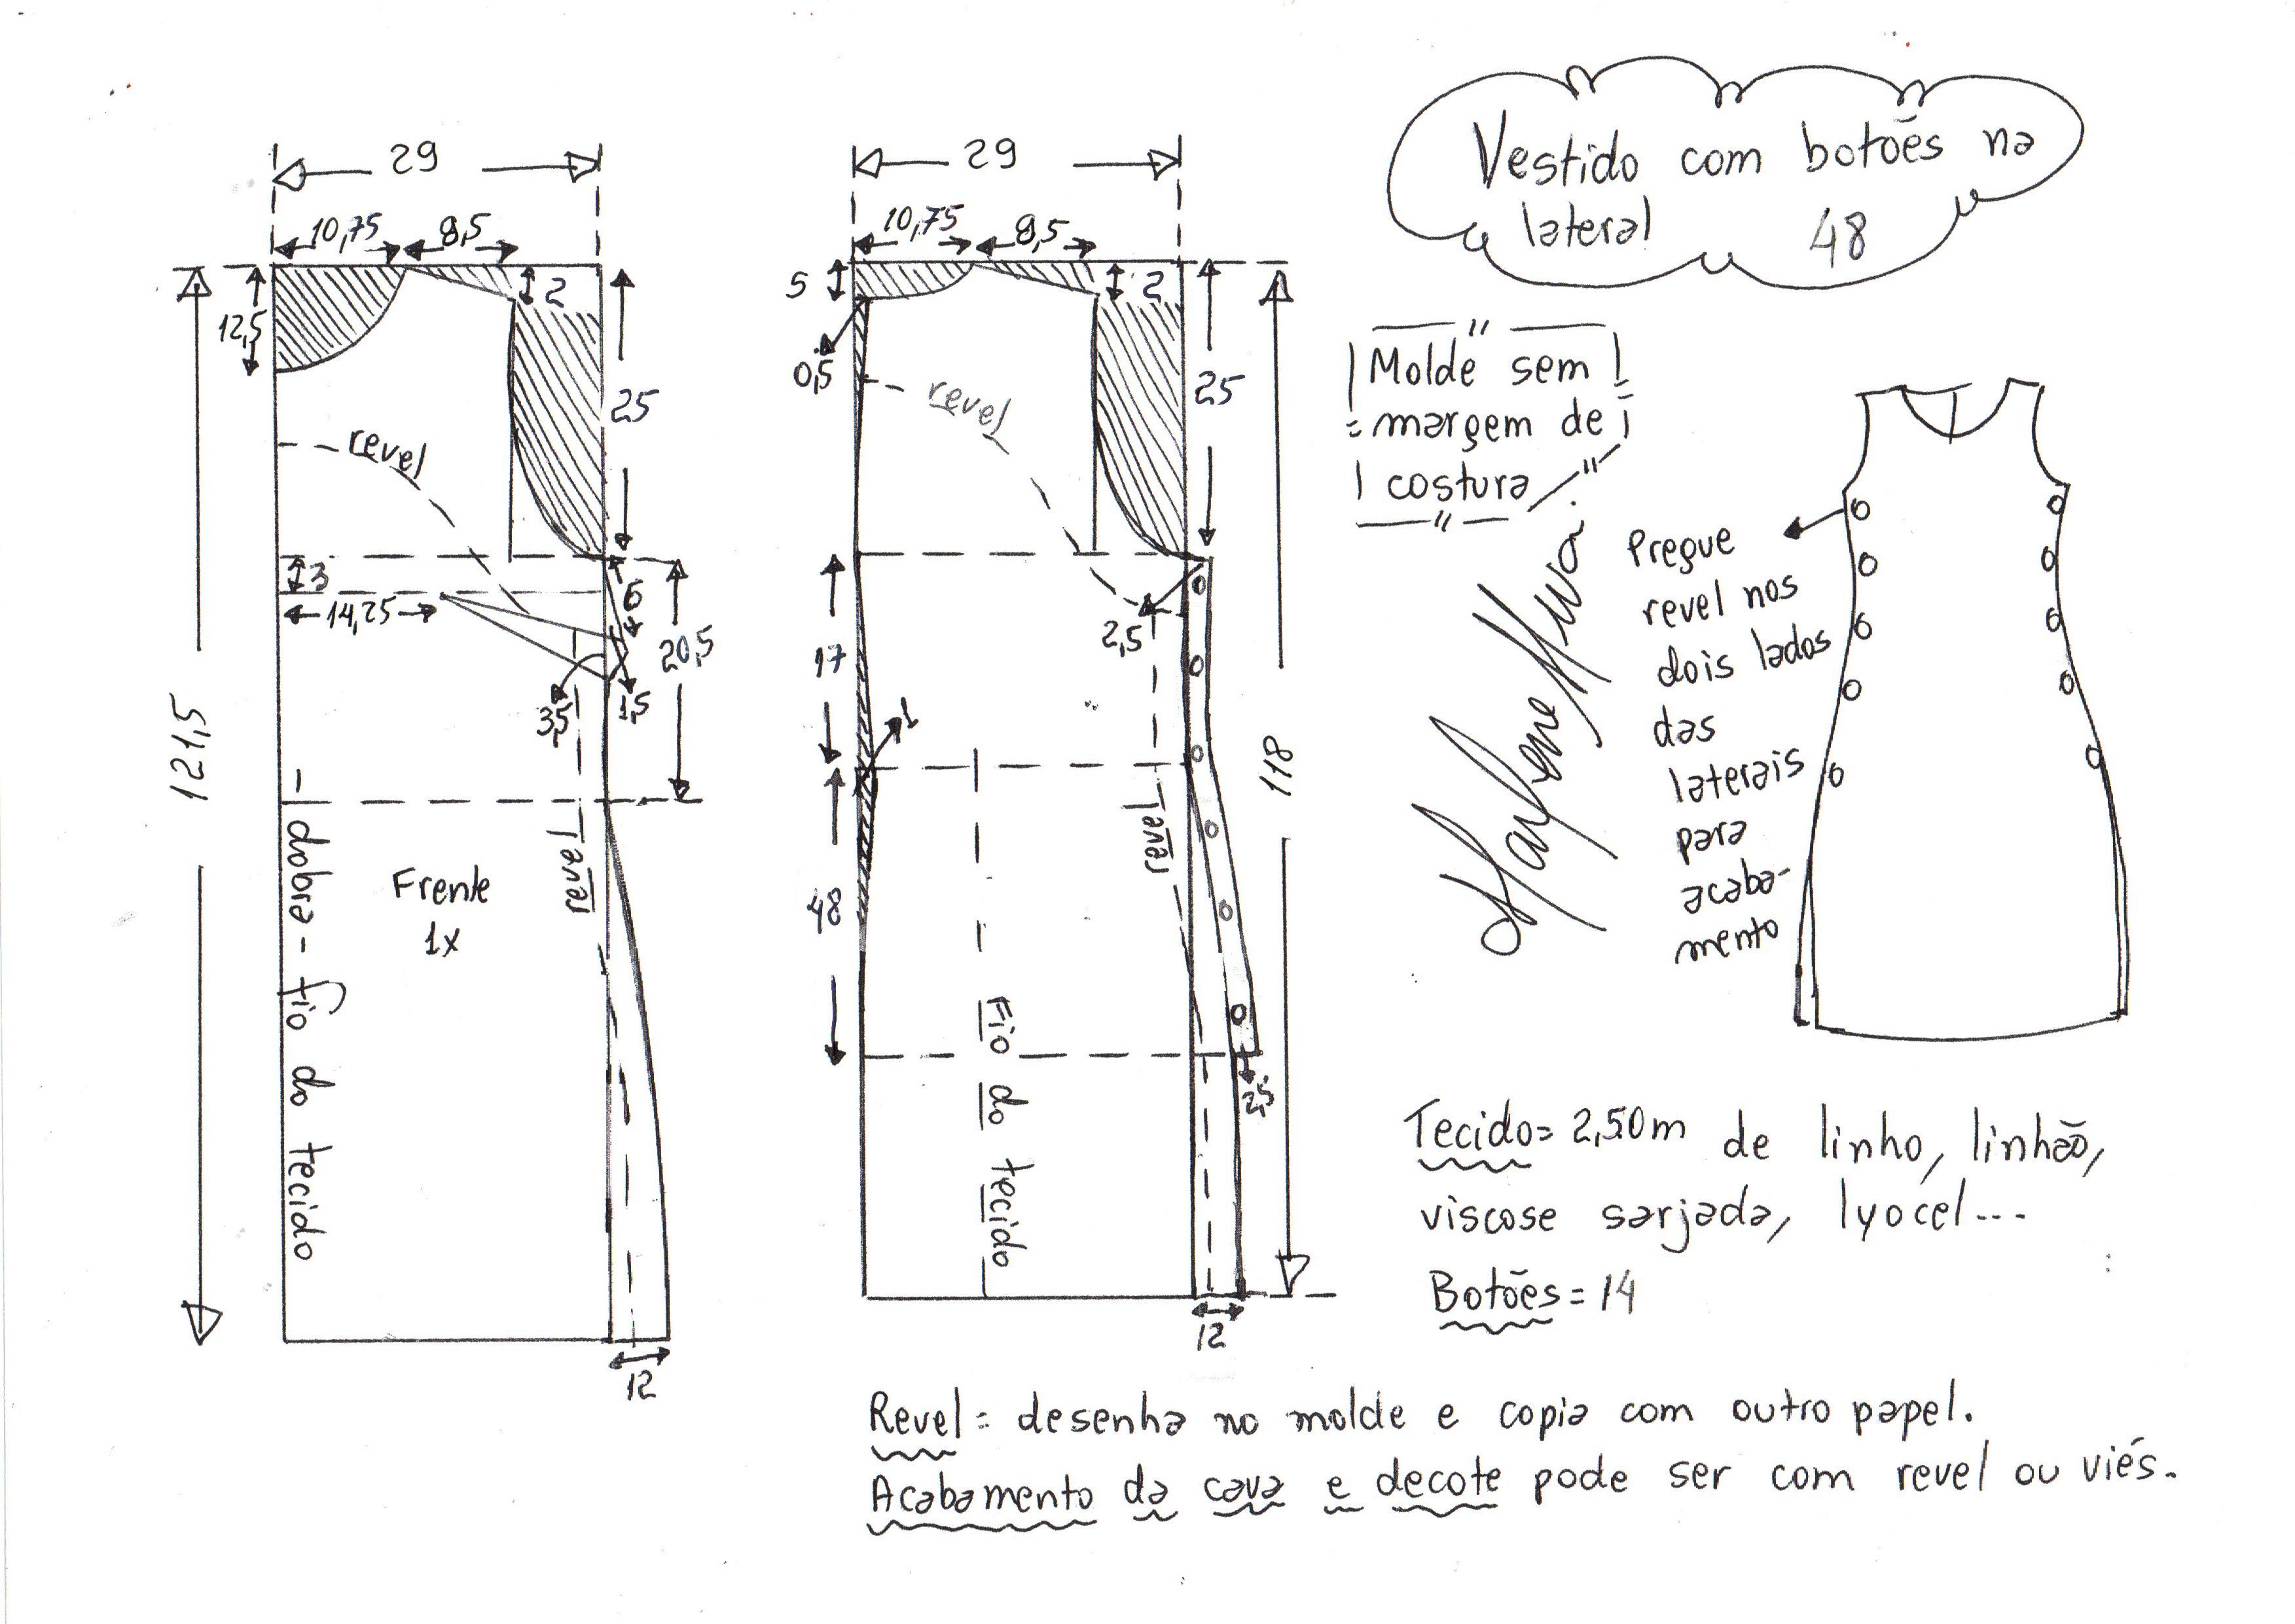 Vestido com botões na
lateral 48
Molde sem
margem de
costura
29
10,75 8,5
12,5
2
25
revel
3
14,25
6
20,5
3,5
1,5
121,5
dobra - fio do tecido
Frente
1x
revel
12
29
10,75 8,5
5
2
0,5
25
revel
2,5
17
1
48
118
revel
Fio do tecido
2,5
12
Pregue
revel nos
dois lados
das
laterais
para
acaba-
mento
Tecido= 2,50m de linho, linhão,
viscose sarjada, lyocel...
Botões = 14
Revel = desenha no molde e copia com outro papel.
Acabamento da cava e decote pode ser com revel ou viés.